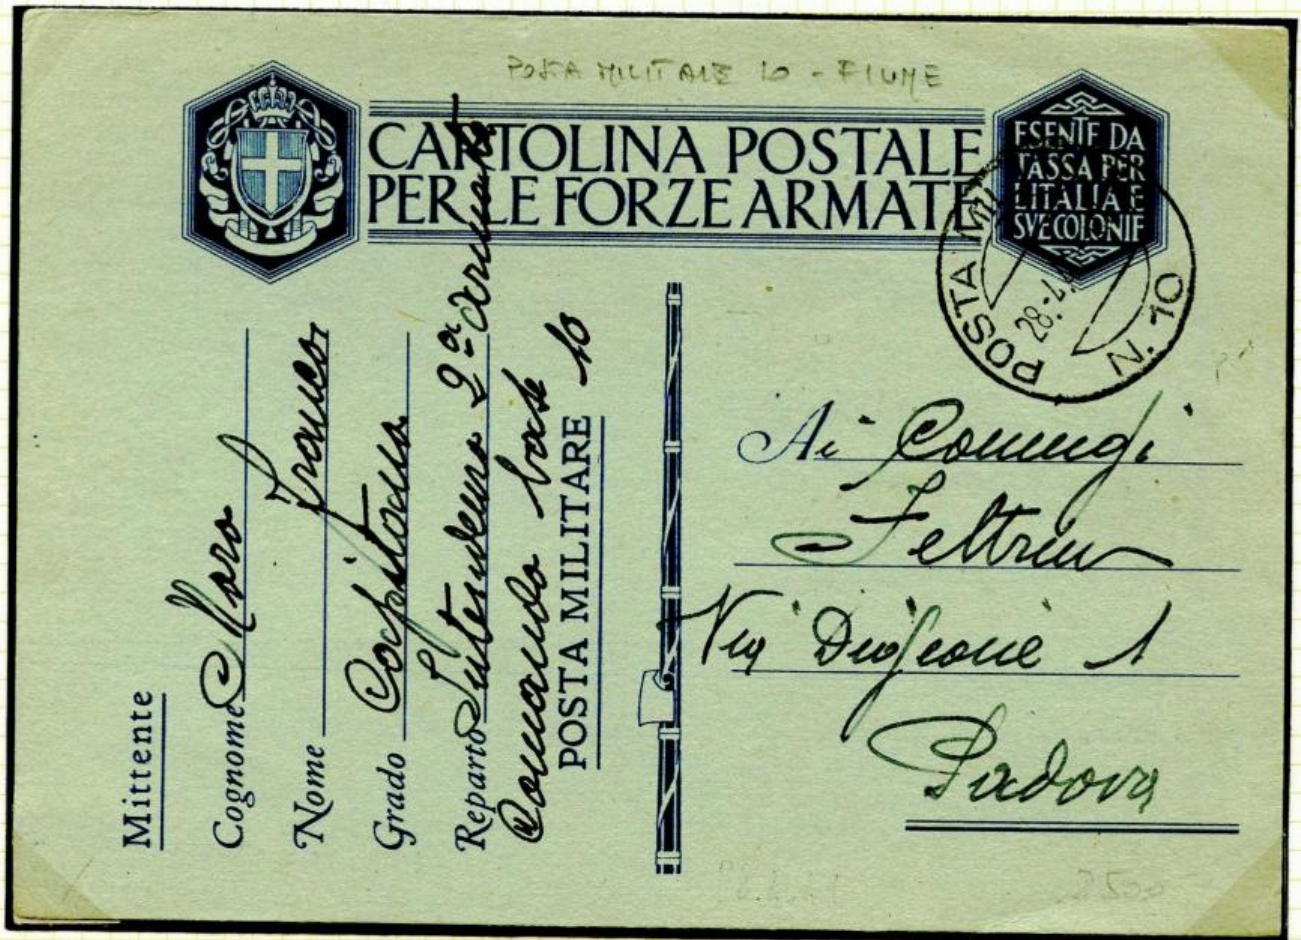 POSTA MILITARE 10 - FIUME
CARTOLINA POSTALE
PER LE FORZE ARMATE
ESENTE DA
TASSA PER
L'ITALIA E
SVE COLONIE
POSTA MILITARE
N. 10
28.4.
Mittente
Cognome Moro
Nome Franco
Grado Capitano
Reparto Intendenza 2ª armata
Comando base
POSTA MILITARE 10
Ai Coniugi
Feltrin
Via 1
Padova